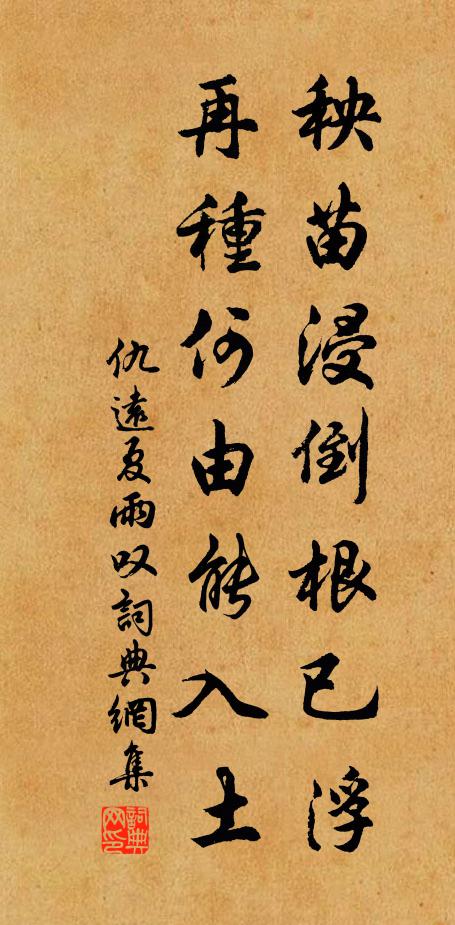 秧苗浸倒根已浮
再種何由能入土
仇遠夏雨叹詞典網集
詞典
网印